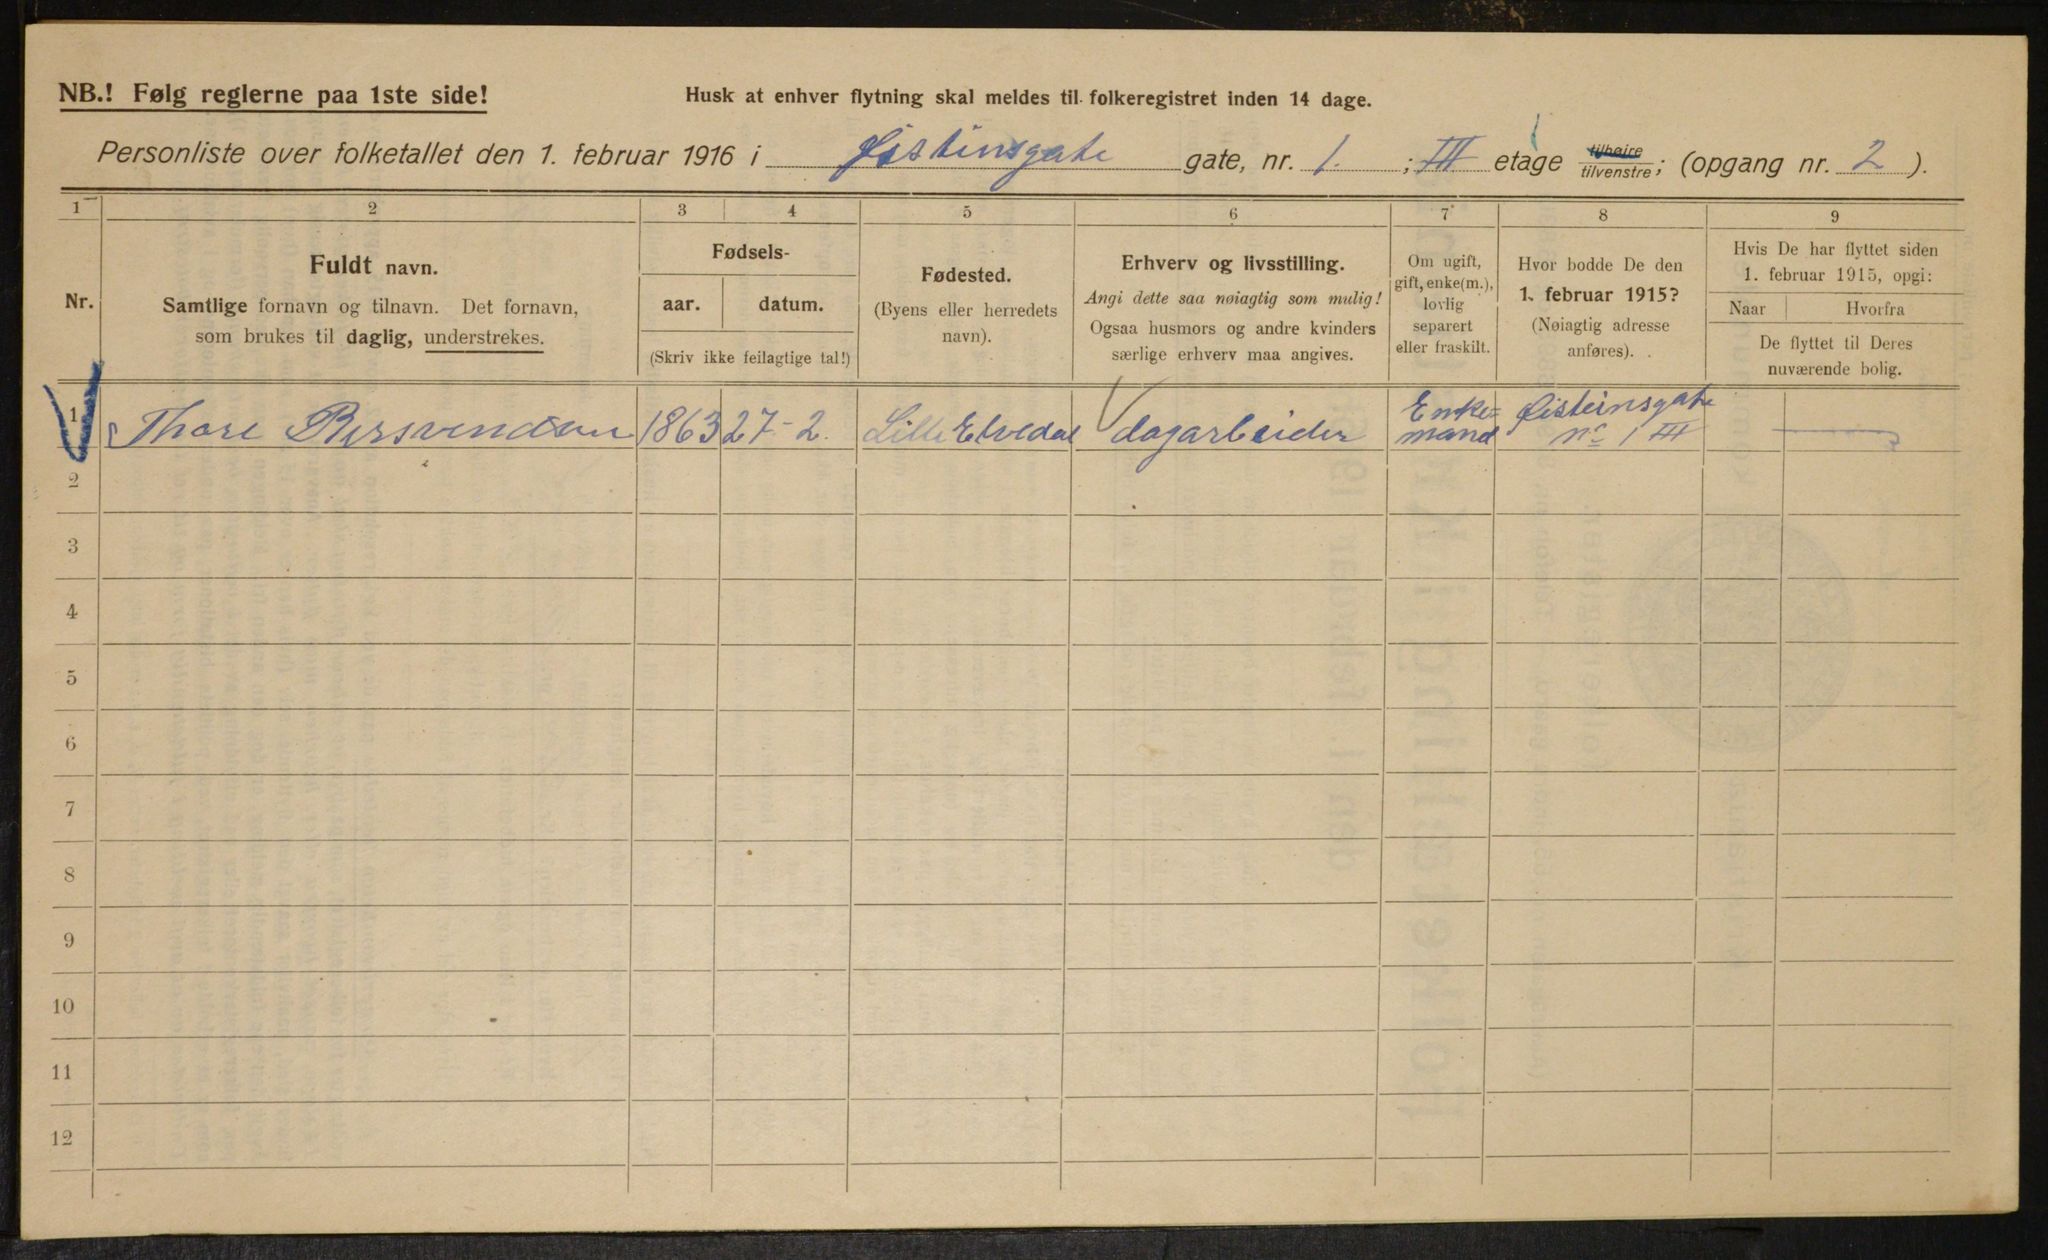 NB.! Følg reglerne paa 1ste side!
Husk at enhver flytning skal meldes til folkeregistret inden 14 dage.
Personliste over folketallet den 1. februar 1916 i Øistensgate gate, nr. 1. ; III etage tilhøire tilvenstre; (opgang nr. 2).
1 2 3 4 5 6 7 8 9
Nr.
Fuldt navn.
Samtlige fornavn og tilnavn. Det fornavn,
som brukes til daglig, understrekes.
Fødsels-
aar. datum.
(Skriv ikke feilagtige tal!)
Fødested.
(Byens eller herredets
navn).
Erhverv og livsstilling.
Angi dette saa nøiagtig som mulig!
Ogsaa husmors og andre kvinders
særlige erhverv maa angives.
Om ugift,
gift, enke(m.),
lovlig
separert
eller fraskilt.
Hvor bodde De den
1. februar 1915?
(Nøiagtig adresse
anføres).
Hvis De har flyttet siden
1. februar 1915, opgi:
Naar Hvorfra
De flyttet til Deres
nuværende bolig.
1 Thore Bersvendsen 1863 27-2. Lille Elvedal dagarbeider Enke-
mand Øisteinsgate
nr 1 III
2
3
4
5
6
7
8
9
10
11
12